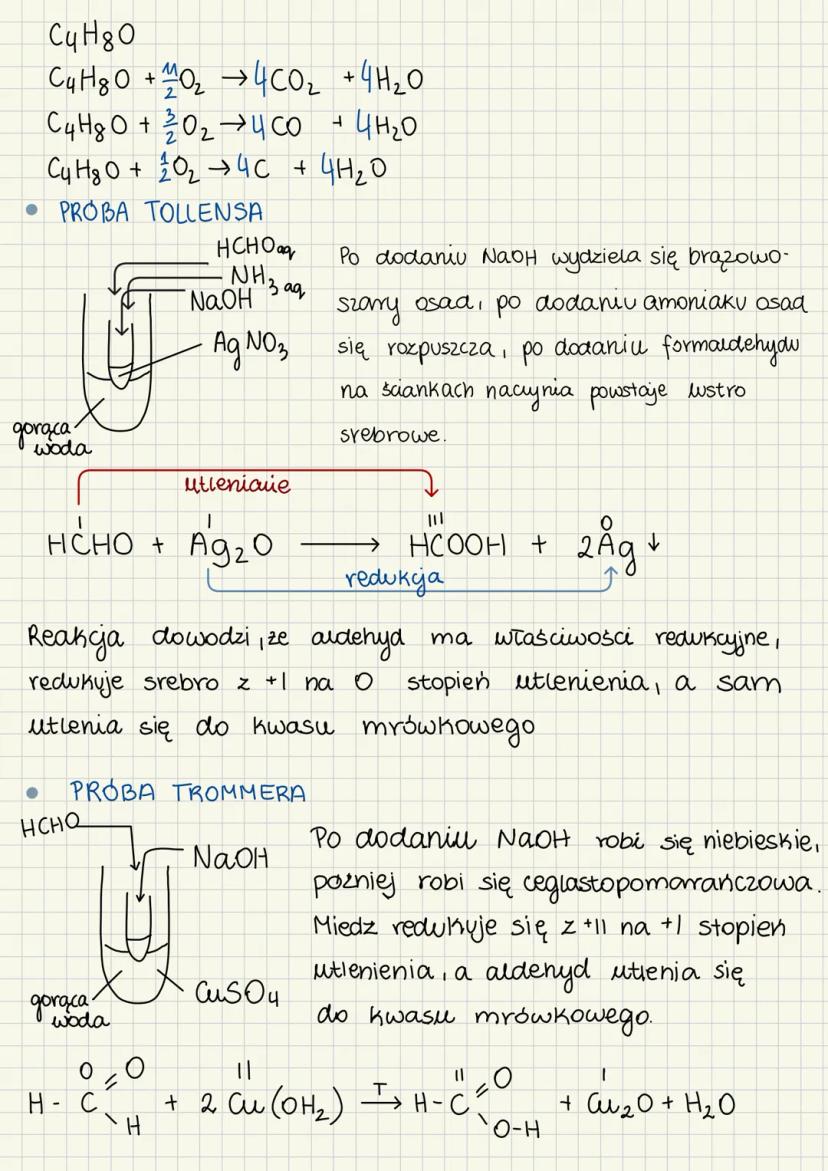 C4H8O
C4H8O + 11/2 O2 → 4CO2 + 4H2O
C4H8O + 3/2 O2 → 4CO + 4H2O
C4H8O + 1/2 O2 → 4C + 4H2O
• PRÓBA TOLLENSA
HCHO aq
NH3 aq
NaOH
AgNO3
gorąca
woda
Po dodaniu NaOH wydziela się brązowo-
szary osad, po dodaniu amoniaku osad
się rozpuszcza, po dodaniu formaldehydu
na ściankach naczynia powstaje lustro
srebrowe.
utlenianie
I I III 0
HCHO + Ag2O → HCOOH + 2Ag ↓
redukcja
Reakcja dowodzi, że aldehyd ma właściwości redukcyjne,
redukuje srebro z +I na 0 stopień utlenienia, a sam
utlenia się do kwasu mrówkowego
• PRÓBA TROMMERA
HCHO
NaOH
CuSO4
gorąca
woda
Po dodaniu NaOH robi się niebieskie,
pozniej robi się ceglastopomarańczowa.
Miedz redukuje się z +II na +I stopień
utlenienia, a aldehyd utlenia się
do kwasu mrówkowego.
0 O II II O I
H - C + 2 Cu(OH2) T → H - C + Cu2O + H2O
H O-H